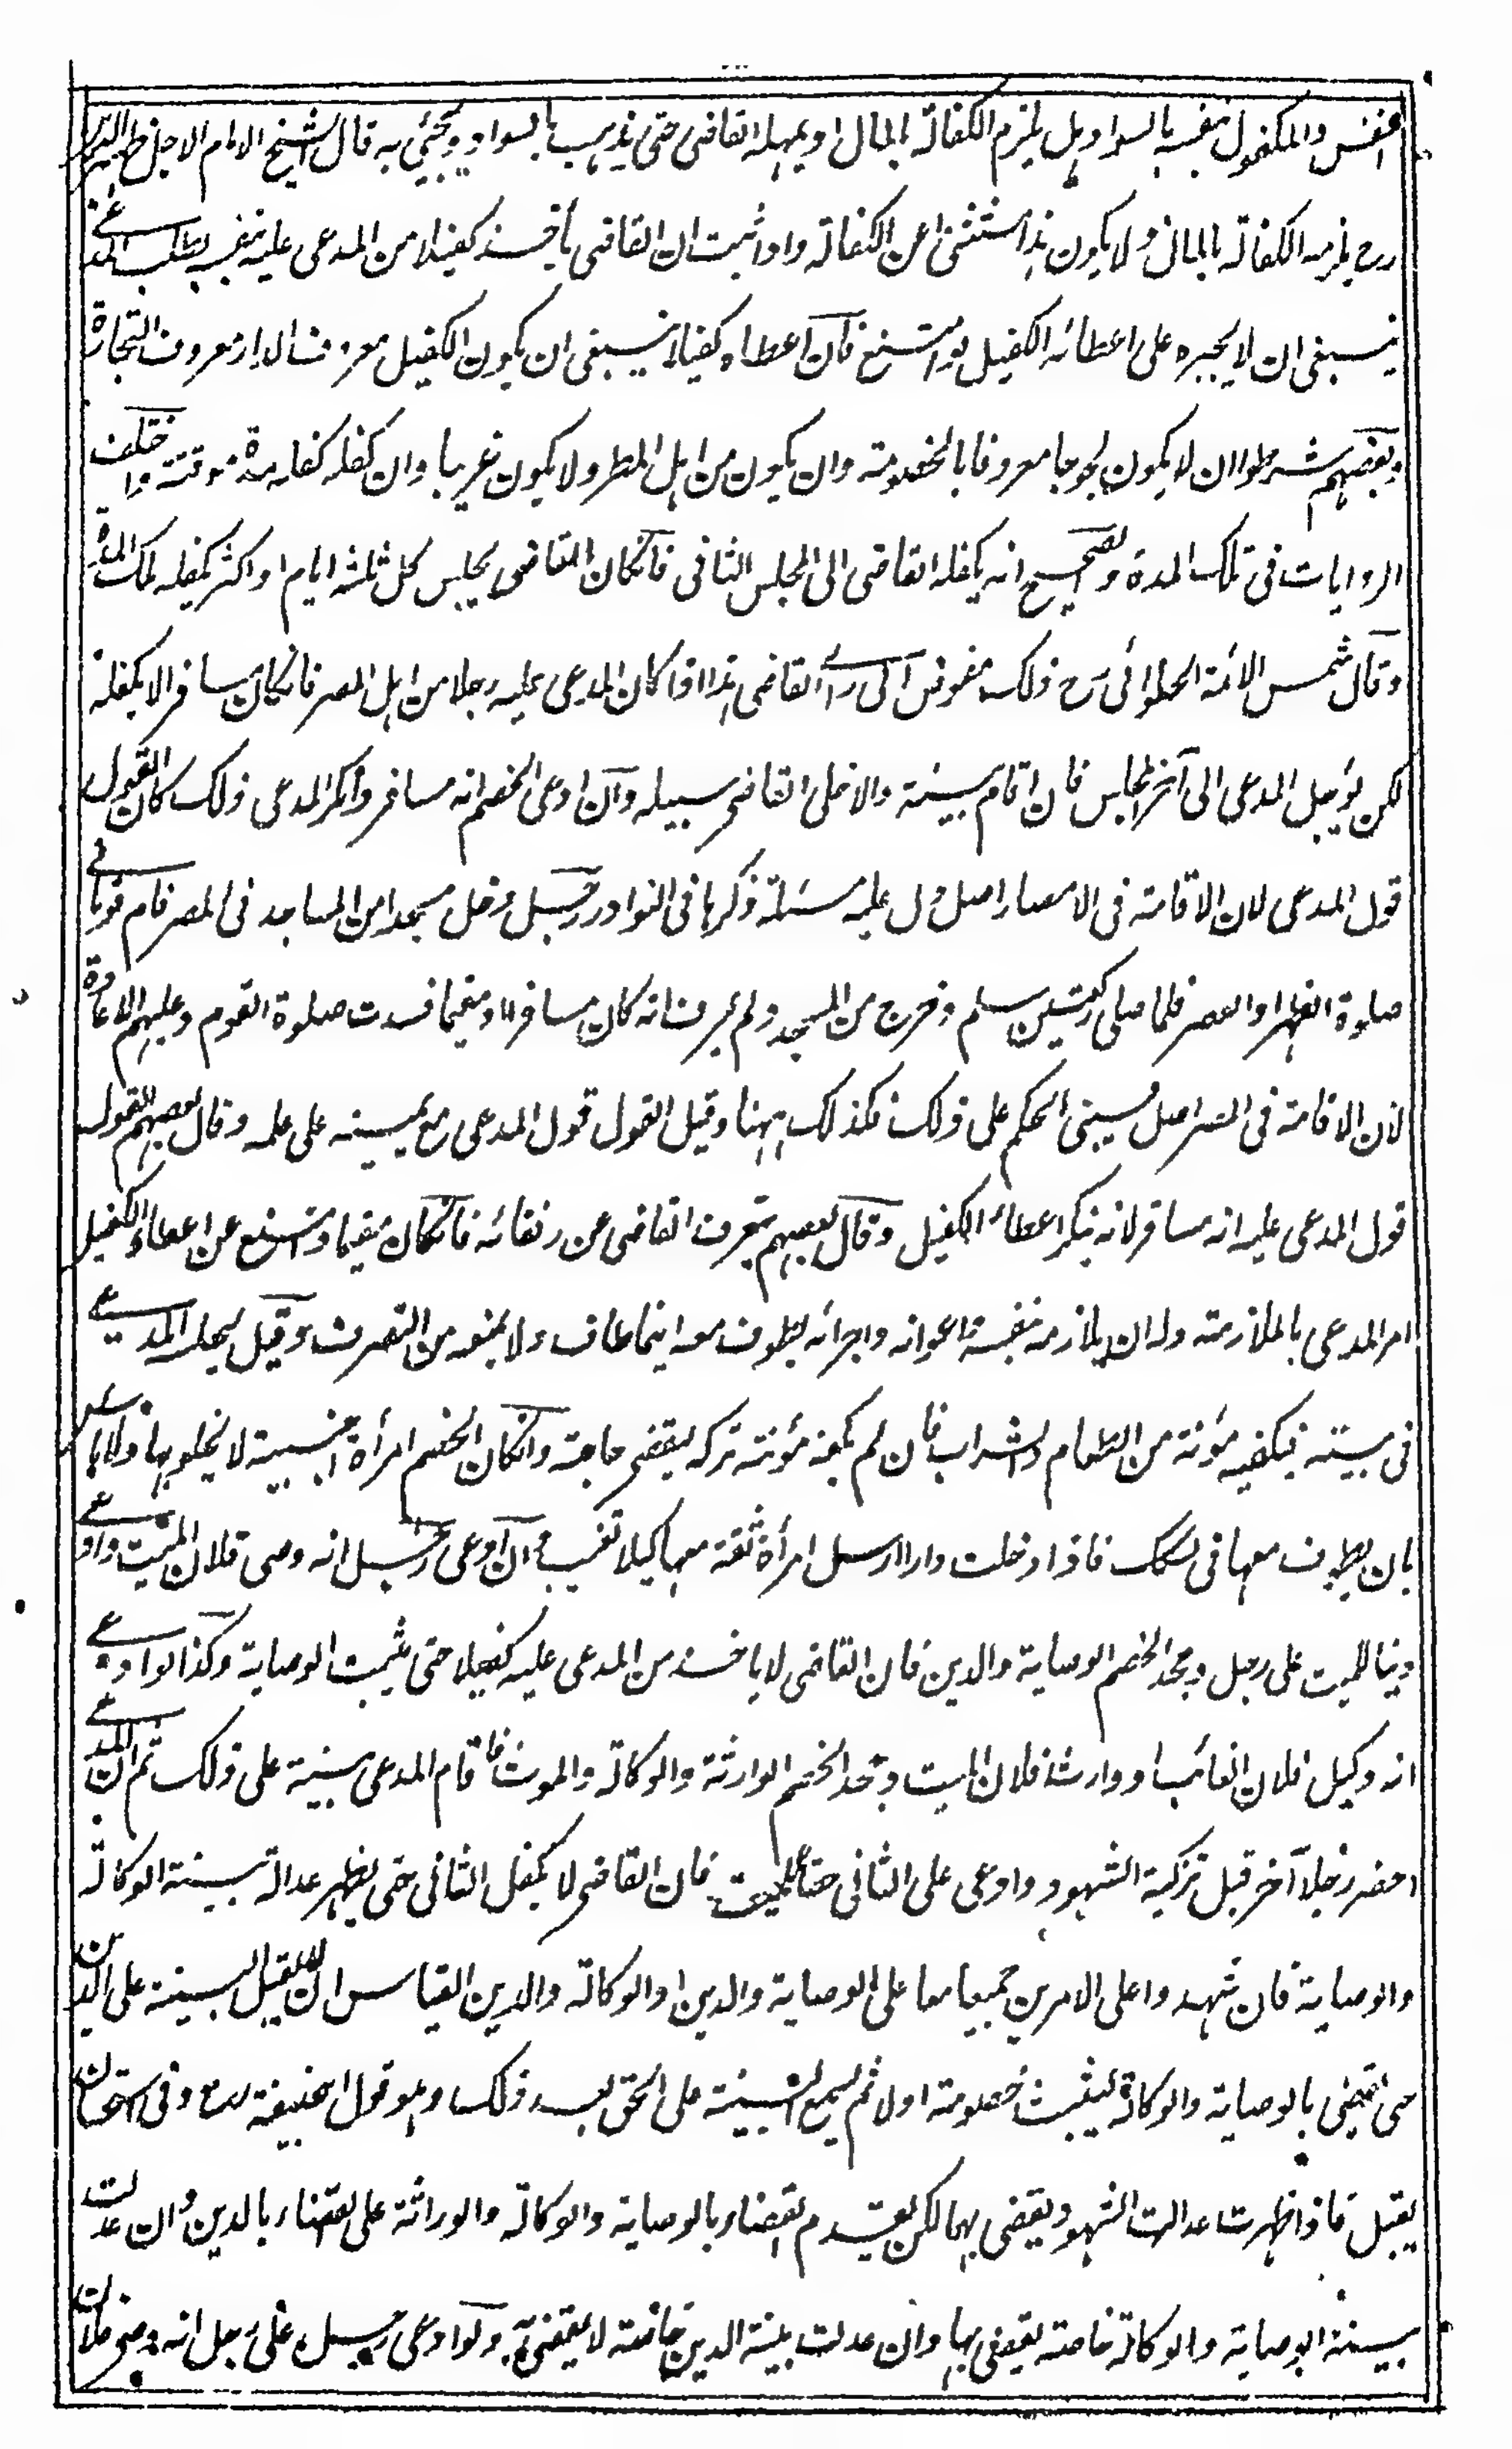 النفس والمكفول بنفسه بالسواد هل يلزم الكفالة بالمال او يمهله القاضى حتى يذهب بالسواد ويجيئ به قال الشيخ الامام الاجل ظهير الدين
رح يلزمه الكفالة بالمال ولا يكون هذا مستثنى عن الكفالة واذا ثبت ان القاضى يأخذ كفيلا من المدعى عليه بنفسه بطلب المدعى
ينبغى ان لا يجبره على اعطائه الكفيل لو امتنع فان اعطاه كفيلا ينبغى ان يكون الكفيل معروف الدار معروف التجارة
وبعضهم شرطوا ان لا يكون لجوجا معروفا بالخصومة وان يكون من اهل المصر ولا يكون غريبا وان كفله كفله مدة موقتة واختلف
الروايات فى تلك المدة والصحيح انه يكفله القاضى الى المجلس الثانى فانكان القاضى يجلس كل ثلثة ايام او اكثر يكفله تلك المدة
وقال شمس الائمة الحلوائى رح ذلك مفوض الى رأى القاضى هذا اذا كان المدعى عليه رجلا من اهل المصر فانكان مسافرا لا يكفله
لكن يؤجل المدعى الى آخر المجلس فان اقام بينة والا خلى القاضى سبيله وان ادعى الخصم انه مسافر وانكر المدعى ذلك كان القول
قول المدعى لان الاقامة فى الامصار اصل دل عليه مسئلة ذكرها فى النوادر رجل دخل مسجدا من المساجد فى المصر فام قوما فى
صلوة الظهر او العصر فلما صلى ركعتين سلم وخرج من المسجد ولم يعرف انه كان مسافرا او مقيما فسدت صلوة القوم وعليهم الاعادة
لان الاقامة فى المصر اصل فيبنى الحكم على ذلك فكذلك ههنا وقيل القول قول المدعى مع يمينه على علمه وقال بعضهم القول
قول المدعى عليه انه مسافر لانه ينكر اعطاء الكفيل وقال بعضهم يتعرف القاضى عن رفقائه فانكان مقيما وامتنع عن اعطاء الكفيل
امر المدعى بالملازمة وله ان يلازمه بنفسه او اعوانه واجرائه يطوف معه اينما طاف ولا يمنعه من التصرف وقيل يجلسه المدعى
فى بيته فيكفيه مؤنة من الطعام والشراب فان لم يكفه مؤنته تركه ليقضى حاجته وانكان الخصم امرأة اجنبية لا يخلو بها ولا بأس
بان يطوف معها فى السكك فاذا دخلت دارا ارسل امرأة ثقة معها كيلا تغيب وان ادعى رجل انه وصى فلان الميت وادعى
دينا للميت على رجل وجحد الخصم الوصاية والدين فان القاضى لا يأخذ من المدعى عليه كفيلا حتى يثبت الوصاية وكذا لو ادعى
انه وكيل فلان الغائب او وارث فلان الميت وجحد الخصم الوارثة والوكالة والموت فاقام المدعى بينة على ذلك ثم ان المدعى
احضر رجلا آخر قبل تزكية الشهود وادعى على الثانى حقا للميت فان القاضى لا يكفل الثانى حتى يظهر عدالة بينة الوكالة
والوصاية فان شهدوا على الامرين جميعا معا على الوصاية والدين او الوكالة والدين القياس ان لا يقبل البينة على الدين
حتى يقضى بالوصاية والوكالة ليثبت خصومته اولا ثم يسمع البينة على الحق بعد ذلك وهو قول ابيحنيفة رح وفى الاستحسان
يقبل فاذا ظهرت عدالت الشهود يقضى بهما لكن يقدم القضاء بالوصاية والوكالة والوراثة على القضاء بالدين وان عدلت
بينة الوصاية والوكالة خاصة يقضى بها وان عدلت بينة الدين خاصة لا يقضى به ولو ادعى رجل على رجل انه وصى فلان